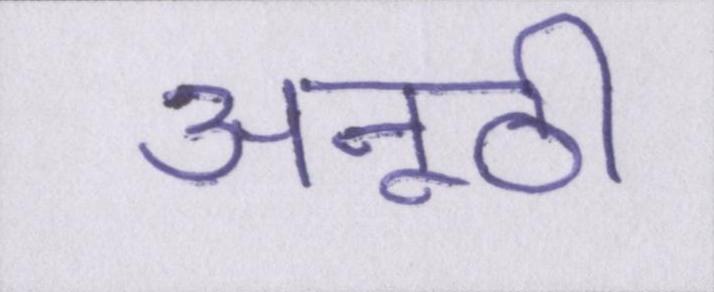 अनूठी